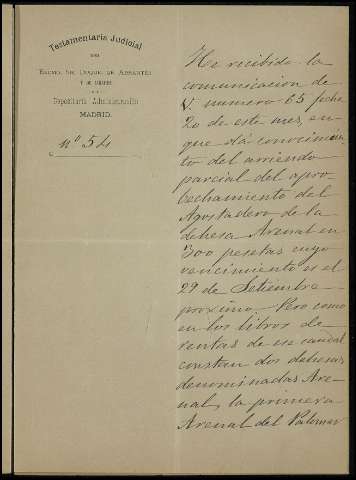 Testamentaria Judicial
DEL
EXCMO. SR. DUQUE DE ABRANTES
Y DE LINARES
Depositaría Administración
MADRID.
nº 54
He recibido la
comunicacion de
V. numero 65 fecha
20 de este mes, en
que dá conocimien
to del arriendo
parcial del apro
bechamiento del
Agostadero de la
dehesa Arenal en
300 pesetas cuyo
vencimiento es el
29 de Setiembre
proximo. Pero como
en los libros de
rentas de ese caudal
constan dos dehesas
denominadas Are
nal, la primera
Arenal del Palomar